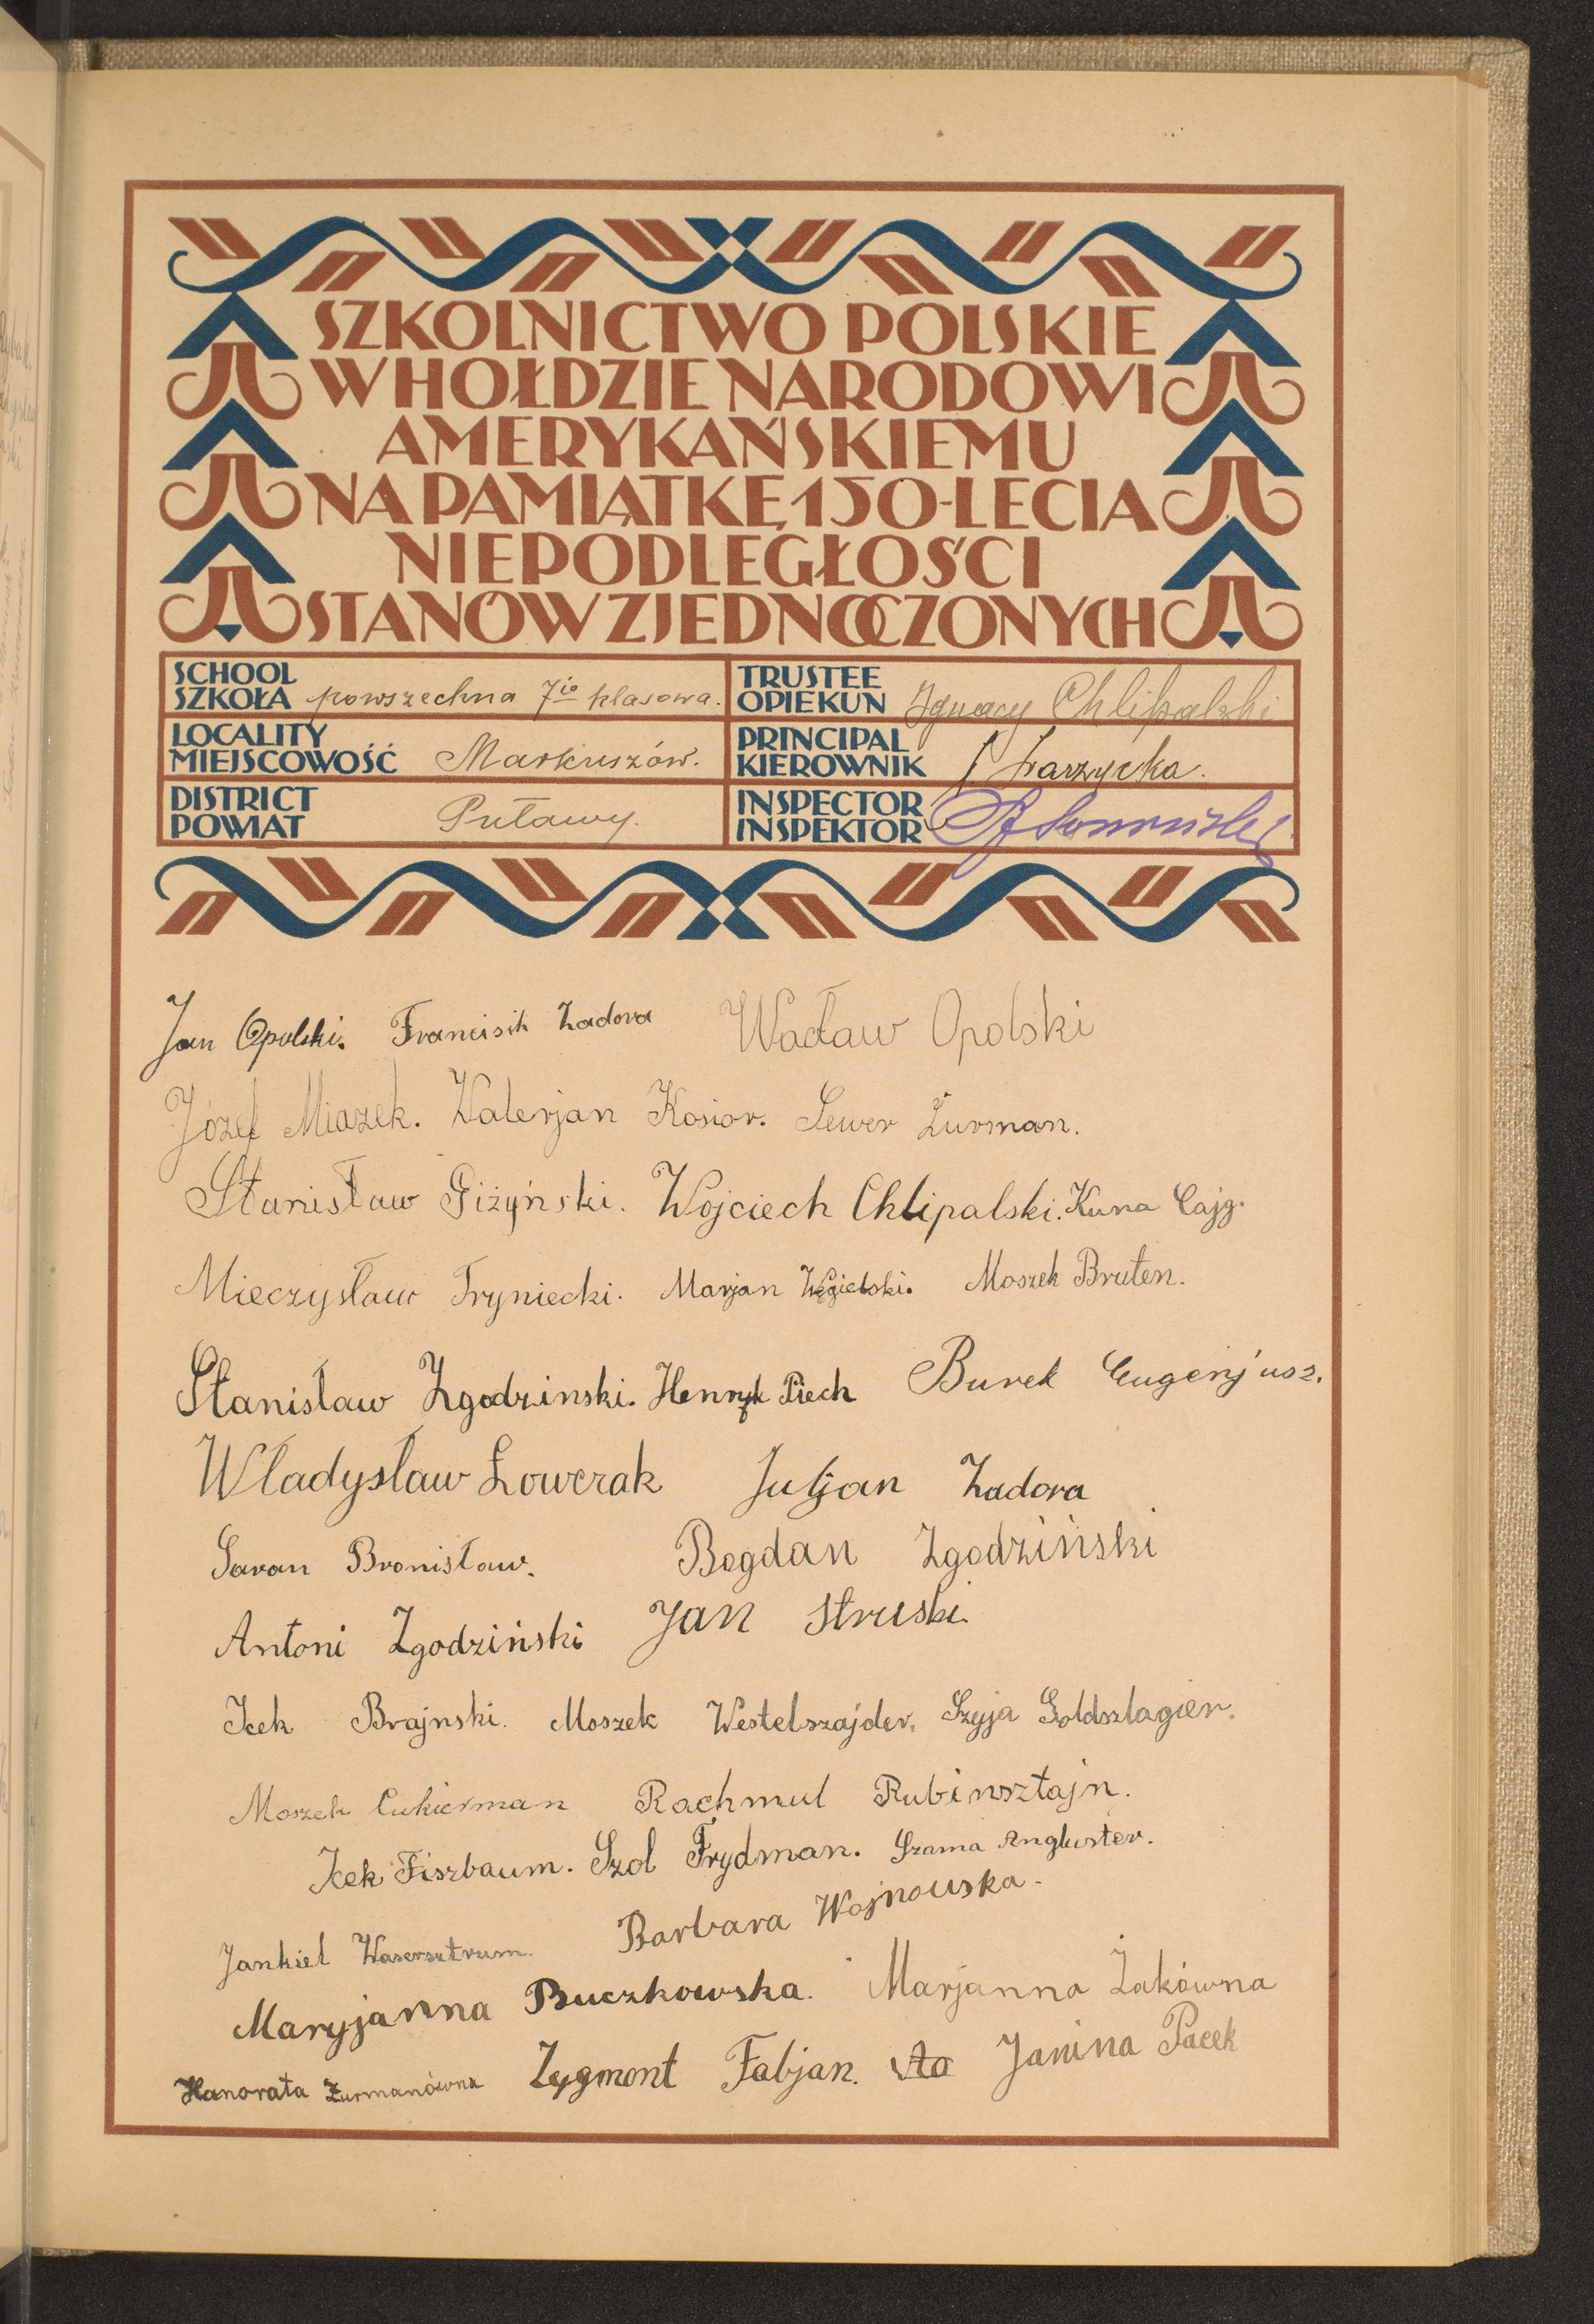 SZKOLNICTWO POLSKIE
W HOŁDZIE NARODOWI
AMERYKAŃSKIEMU
NA PAMIĄTKĘ 150-LECIA
NIEPODLEGŁOŚCI
STANÓW ZJEDNOCZONYCH
SCHOOL
SZKOŁA powszechna 7io klasowa.
TRUSTEE
OPIEKUN Ignacy Chlipalski
LOCALITY
MIEJSCOWOŚĆ Markuszów.
PRINCIPAL
KIEROWNIK
DISTRICT
POWIAT Puławy.
INSPECTOR
INSPEKTOR
Jan Opolski. Francisik Zadora Wacław Opolski
Józef Miazek. Walerjan Kosior. Sewer Żurman.
Stanisław Giżyński. Wojciech Chlipalski. Kuna Cajg.
Mieczysław Tryniecki. Marjan Węgielski. Moszek Bruten.
Stanisław Zgodzinski. Henryk Piech Burek Eugenjusz.
Władysław Łowczak Juljan Zadora
Saran Bronisław. Bogdan Zgodziński
Antoni Zgodziński Jan Struski.
Icek Brajnski. Moszek Westelszajder. Szyja Goldszlagier.
Moszek Cukierman Rachmul Rubinsztajn.
Icek Fiszbaum. Szol Frydman. Szama Angluster.
Jankiel Wasersztrum. Barbara Wojnowska.
Maryjanna Buczkowska. Marjanna Żakówna
Hanorata Żurmanówna Zygmont Fabjan. Janina Pacek